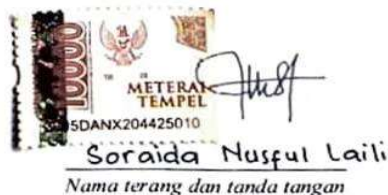 10000
METERAI
TEMPEL
5DANX204425010
Soraida Nusful Laili
Nama terang dan tanda tangan